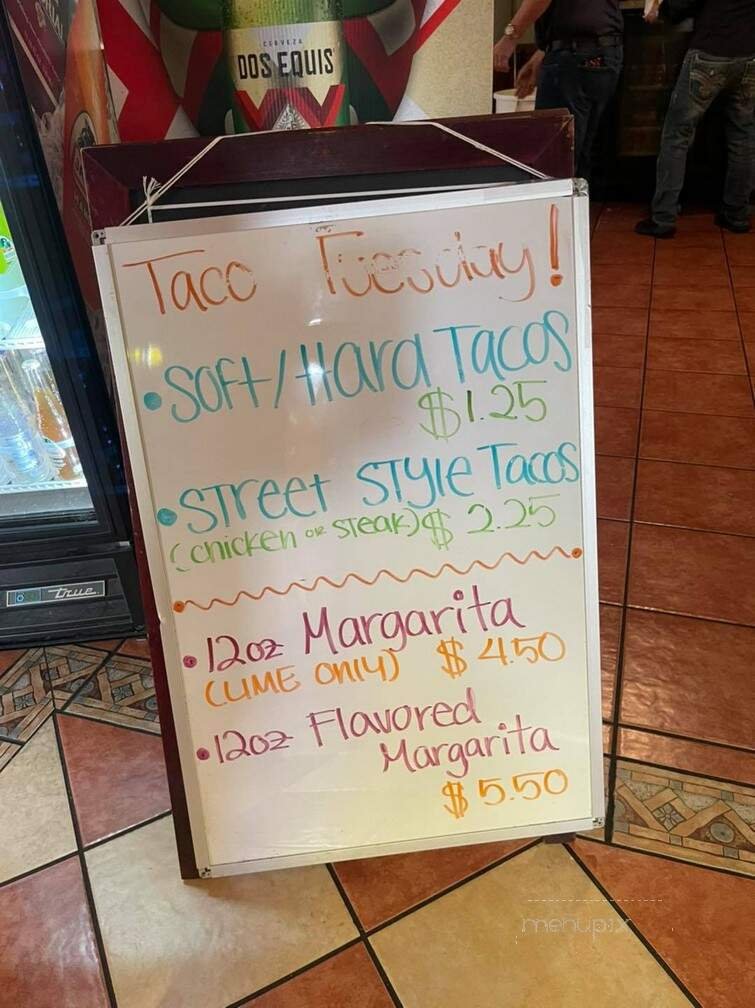 CERVEZA
DOS EQUIS
Taco Tuesday!
• Soft/Hard Tacos
$1.25
• Street Style Tacos
(chicken or steak) $ 2.25
• 12oz Margarita
(LIME ONLY) $ 4.50
• 12oz Flavored
Margarita
$ 5.50
True
menupix